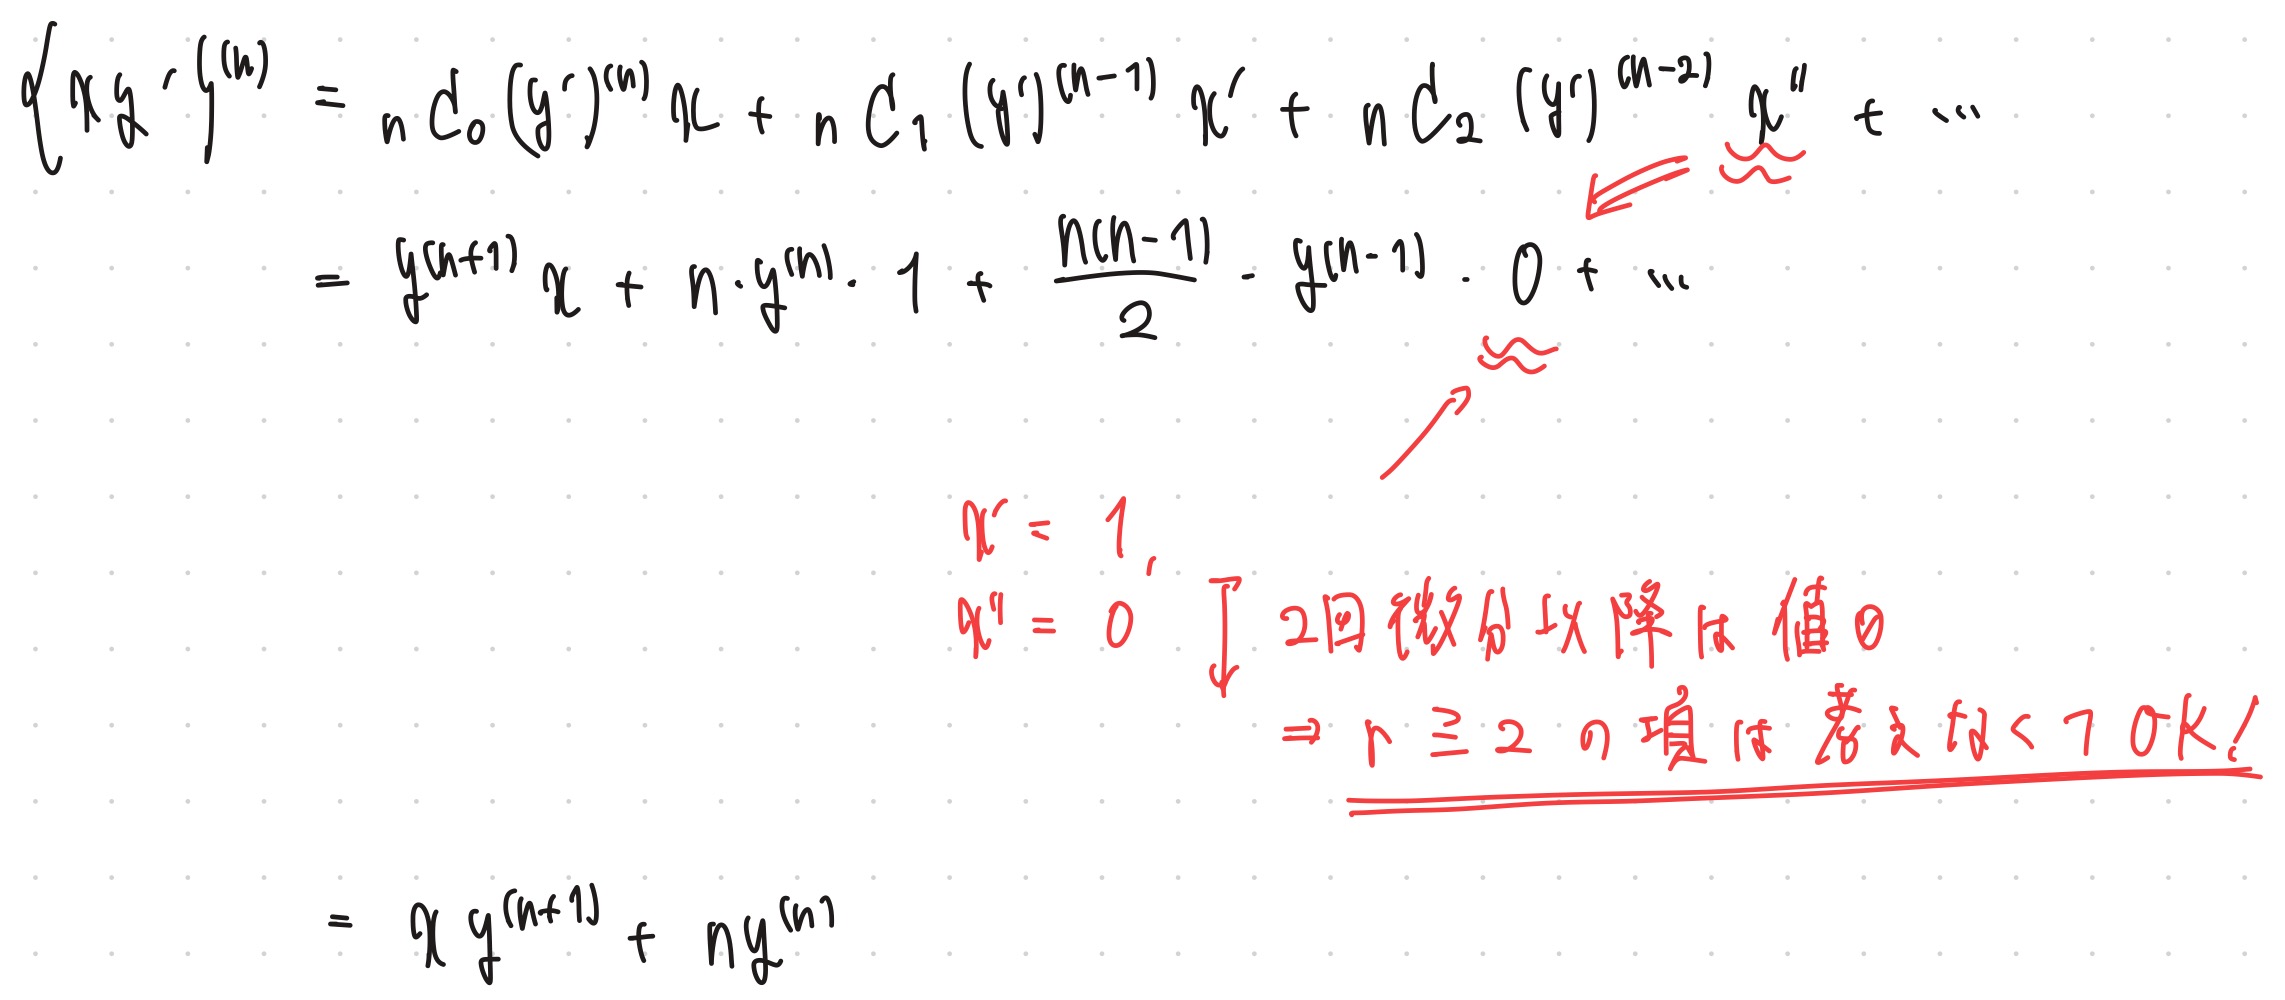 {xy'}^(n) = nC0 (y')^(n) x + nC1 (y')^(n-1) x' + nC2 (y')^(n-2) x'' + …
= y^(n+1) x + n・y^(n)・1 + n(n-1)/2・y^(n-1)・0 + …
x' = 1,
x'' = 0 2回微分以降は値0
⇒ r ≧ 2 の項は考えなくてOK!
= x y^(n+1) + ny^(n)